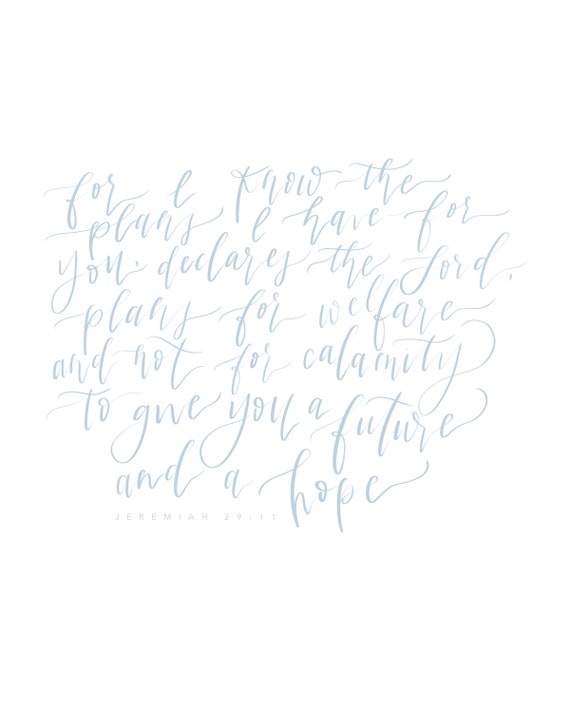 for I know the
plans I have for
you, declares the Lord,
plans for welfare
and not for calamity
to give you a future
and a hope
JEREMIAH 29:11